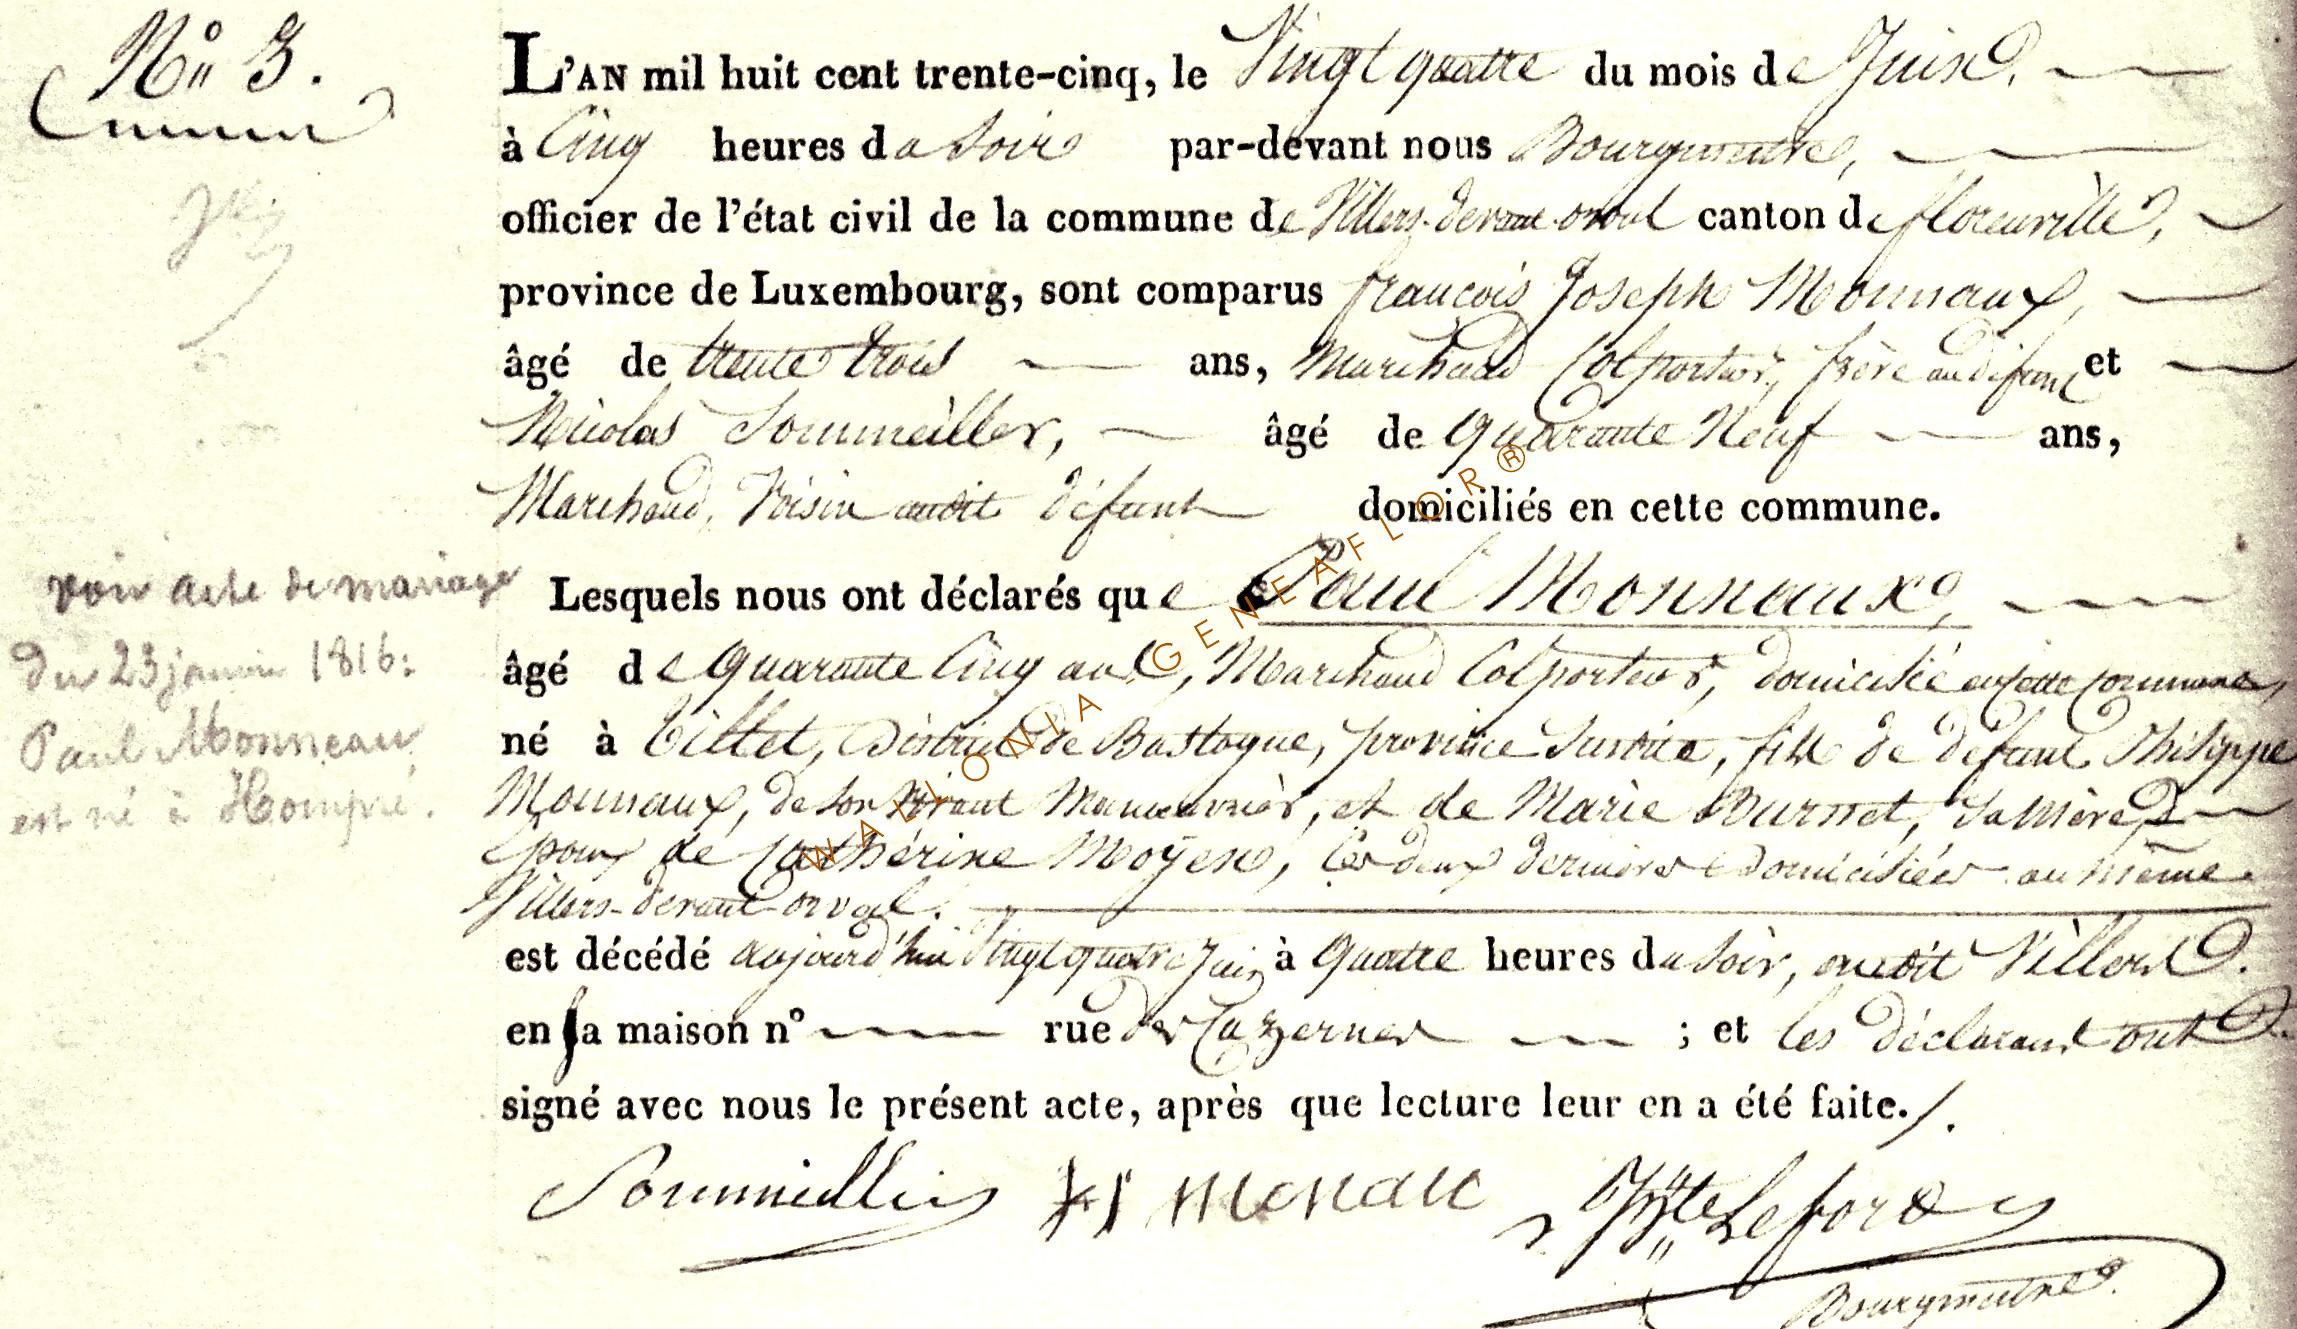 Nº 3.
L'AN mil huit cent trente-cinq, le Vingt quatre du mois de Juin.
à Cinq heures du Soir par-devant nous Bourgmestre,
officier de l'état civil de la commune de Villers-devant-orval canton de florenville,
province de Luxembourg, sont comparus françois Joseph Monnaux,
âgé de trente trois ans, Marchand Colporteur, frère au défunt et
Nicolas Sommeiller, âgé de Quarante Neuf ans,
Marchand, Voisin audit défunt domiciliés en cette commune.
Lesquels nous ont déclarés que Paul Monnaux,
âgé de Quarante Cinq ans, Marchand Colporteur, domicilié en cette Commune,
né à Tillet, District de Bastogne, province Susdite, fils de défunt Philippe
Monnaux, de son Vivant Manoeuvrier, et de Marie Burnet, Sa Mère,
Epoux de Cathérine Moÿen, les deux dernières domiciliées au même
Villers-devant-orval.
est décédé aujourd'hui Vingt quatre Juin à Quatre heures du Soir, audit Villers.
en sa maison nº rue des Cazernes ; et les déclarans ont
signé avec nous le présent acte, après que lecture leur en a été faite./.
voir acte de mariage
du 23 janvier 1816:
Paul Monneau
est né à Hompré.
Sommeillier Monaux Lefort
Bourgmestre.
WALLONIA GENEAFLOR®